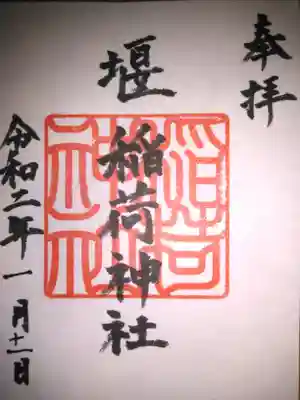 奉拝
堰稲荷神社
令和二年一月十一日